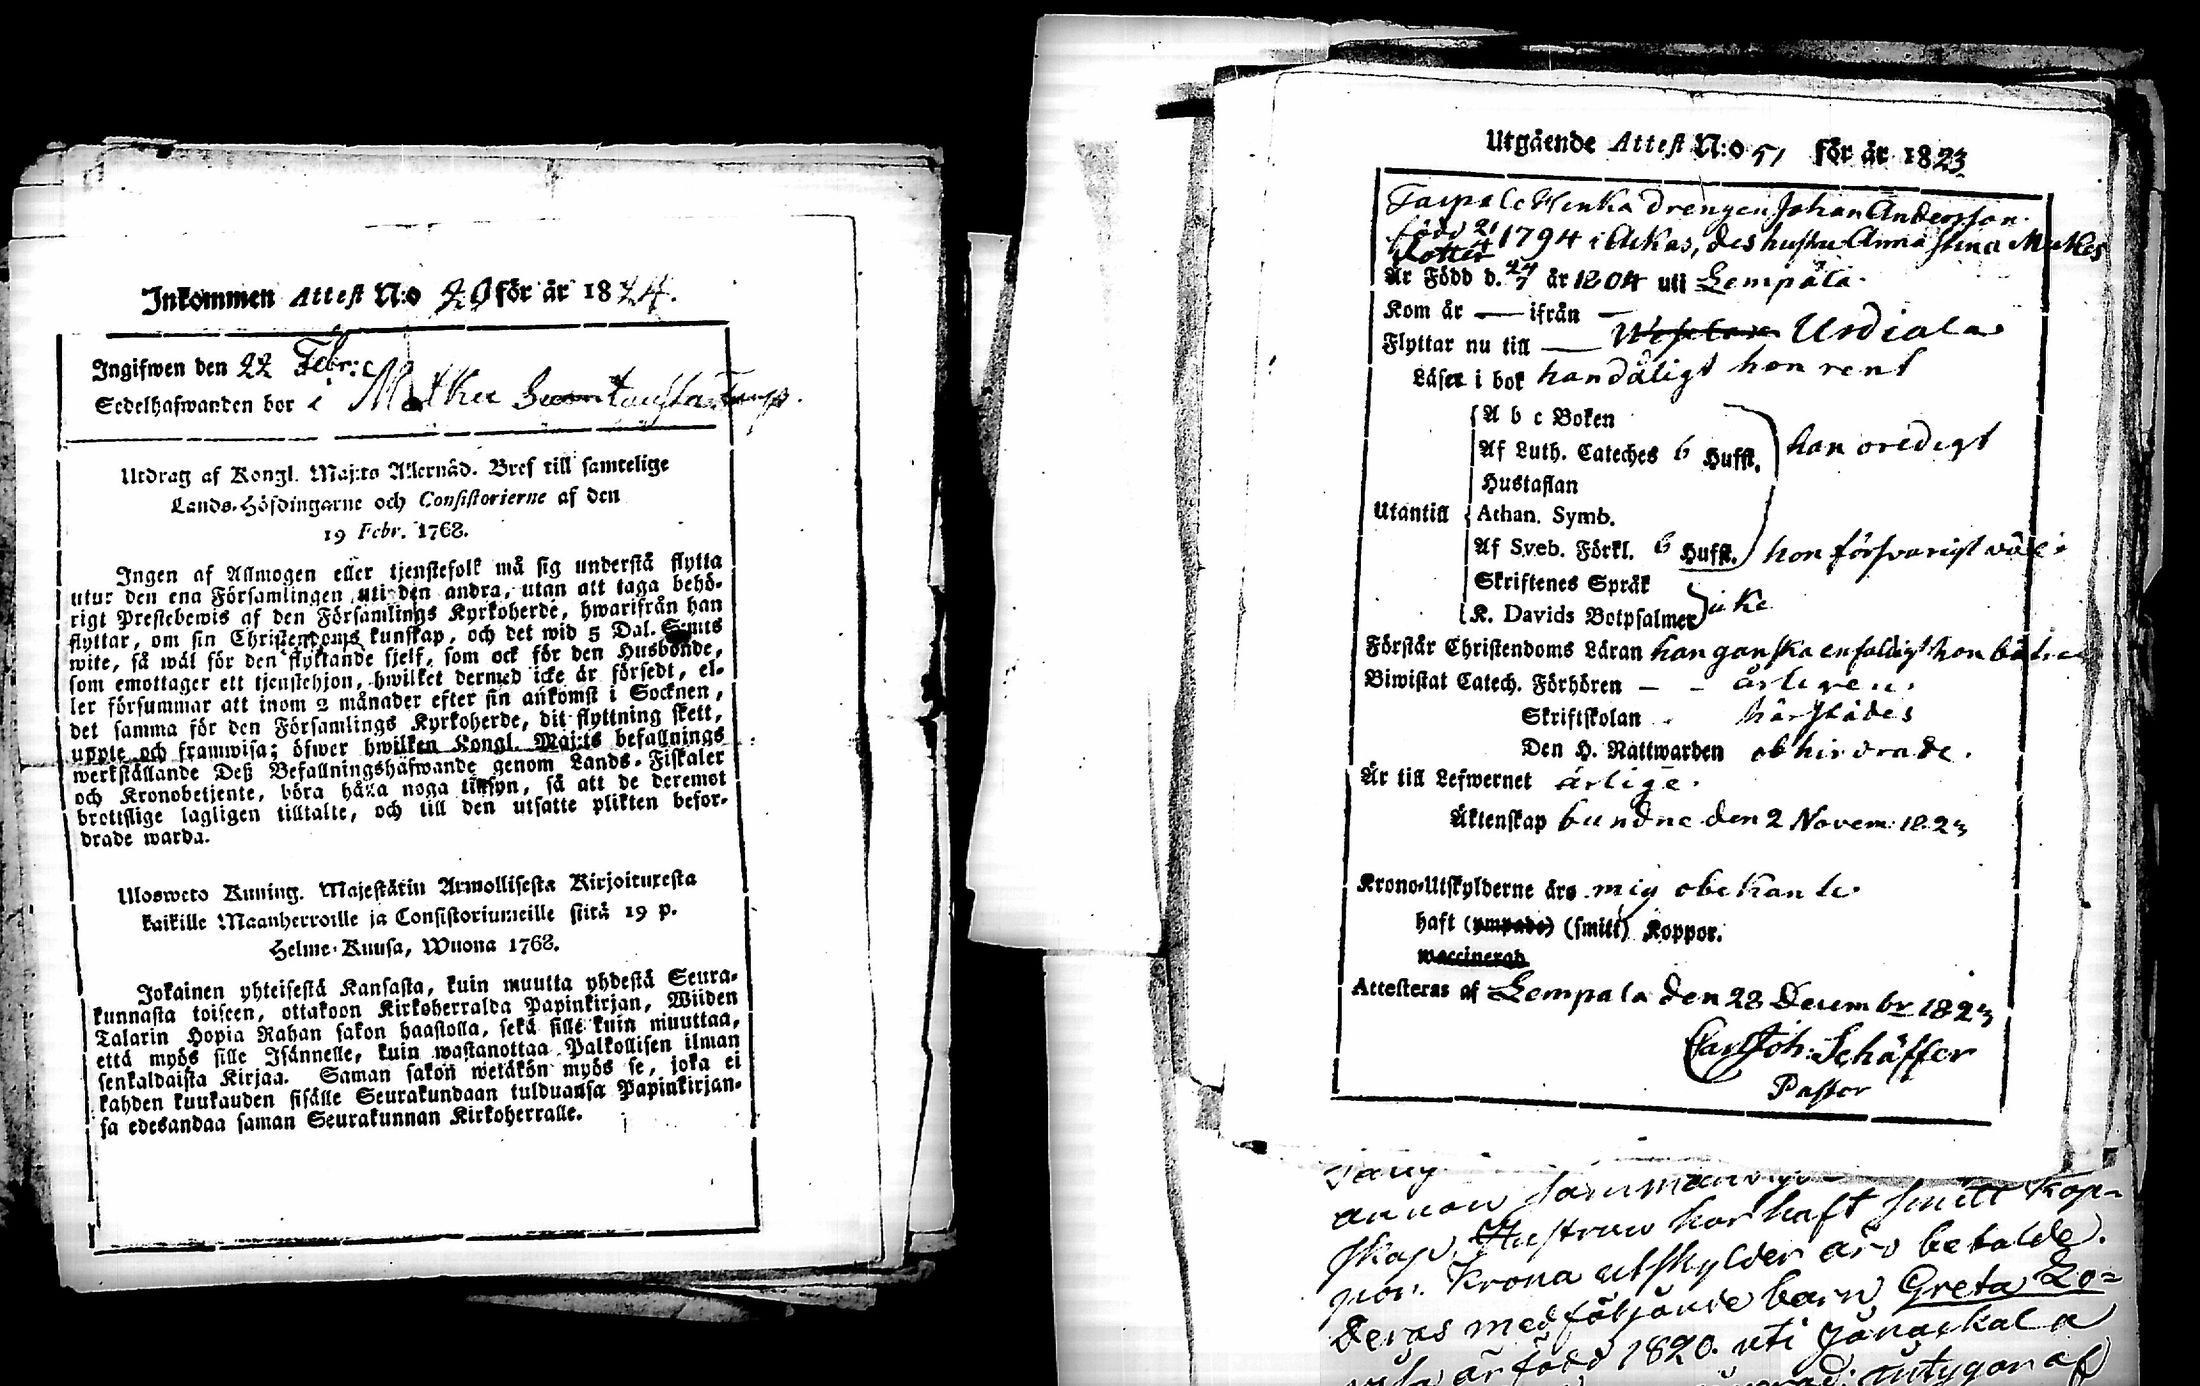 Inkommen Attest N:o 20 för år 1824.
Ingifwen den 22 Febr:
Sedelhafwanden bor i
Utdrag af Kongl. Maj:ts Allernåd. Bref till samtelige
Lands-Höfdingarne och Consistorierne af den
19 Febr. 1768.
Ingen af Allmogen eller tjenstefolk må sig understå flytta
utur den ena Församlingen uti den andra, utan att taga behö-
rigt Prestebewis af den Församlings Kyrkoherde, hwarifrån han
flyttar, om sin Christendoms kunskap, och det wid 5 Dal. S:mts
wite, så wäl för den flyttande sjelf, som ock för den Husbonde,
som emottager ett tjenstehjon, hwilket dermed icke är försedt, el-
ler försummar att inom 2 månader efter sin ankomst i Socknen,
det samma för den Församlings Kyrkoherde, dit flyttning skett,
uppte och framwisa; öfwer hwilken Kongl. Maj:ts befallnings
werkställande Deß Befallningshafwande genom Lands-Fiskaler
och Kronobetjente, böra hålla noga tillsyn, så att de deremot
brottslige lagligen tilltalte, och till den utsatte plikten befor-
drade warda.
Ulosweto Kuning. Majestätin Armollisesta Kirjoituxesta
kaikille Maanherroille ja Consistoriumeille siitä 19 p.
Helme-Kuusa, Wuona 1768.
Jokainen yhteisestä Kansasta, kuin muutta yhdestä Seura-
kunnasta toiseen, ottakoon Kirkoherralda Papinkirjan, Wiiden
Talarin Hopia Rahan sakon haastolla, sekä sille kuin muuttaa,
että myös sille Isännelle, kuin wastanottaa Palkollisen ilman
senkaldaista Kirjaa. Saman sakon wetäkön myös se, joka ei
kahden kuukauden sisälle Seurakundaan tulduansa Papinkirjan-
sa edesandaa saman Seurakunnan Kirkoherralle.
Utgående Attest N:o 51 för år 1823
Drengen Johan Andersson
född 21/4 1794 i Ackas, des hustru Anna Stina
dotter
Är Född d. 24/7 år 1804 uti Lempäla
Kom år — ifrån —
Flyttar nu till — Urdiala
Läser i bok han dåligt hon rent
A b c Boken
Af Luth. Cateches 6 Hufst. han oredigt
Hustaflan
Utantill Athan. Symb.
Af Sveb. Förkl. 6 Hufst. hon försvarigt väl
Skriftenes Språk
K. Davids Botpsalmer icke
Förstår Christendoms Läran han ganska enfaldigt hon bättre
Biwistat Catech. Förhören - - årligen.
Skriftskolan härstädes
Den H. Nattwarden obhindrade.
Är till Lefwernet ärlige.
Äktenskap bundne den 2 Novem: 1823
Krono-Utskylderne äro mig obekante
haft (ympade) (smitt) Koppor.
waccinerad
Attesteras af Lempala den 28 Decembr 1823
Carl Joh: Schäffer
Pastor
annan
skap. Hustrun har haft smitt Kop-
por. Krono utskylder äro betalde.
Deras medföljande barn Greta Lo-
visa är född 1820. uti Janackala
intygar af